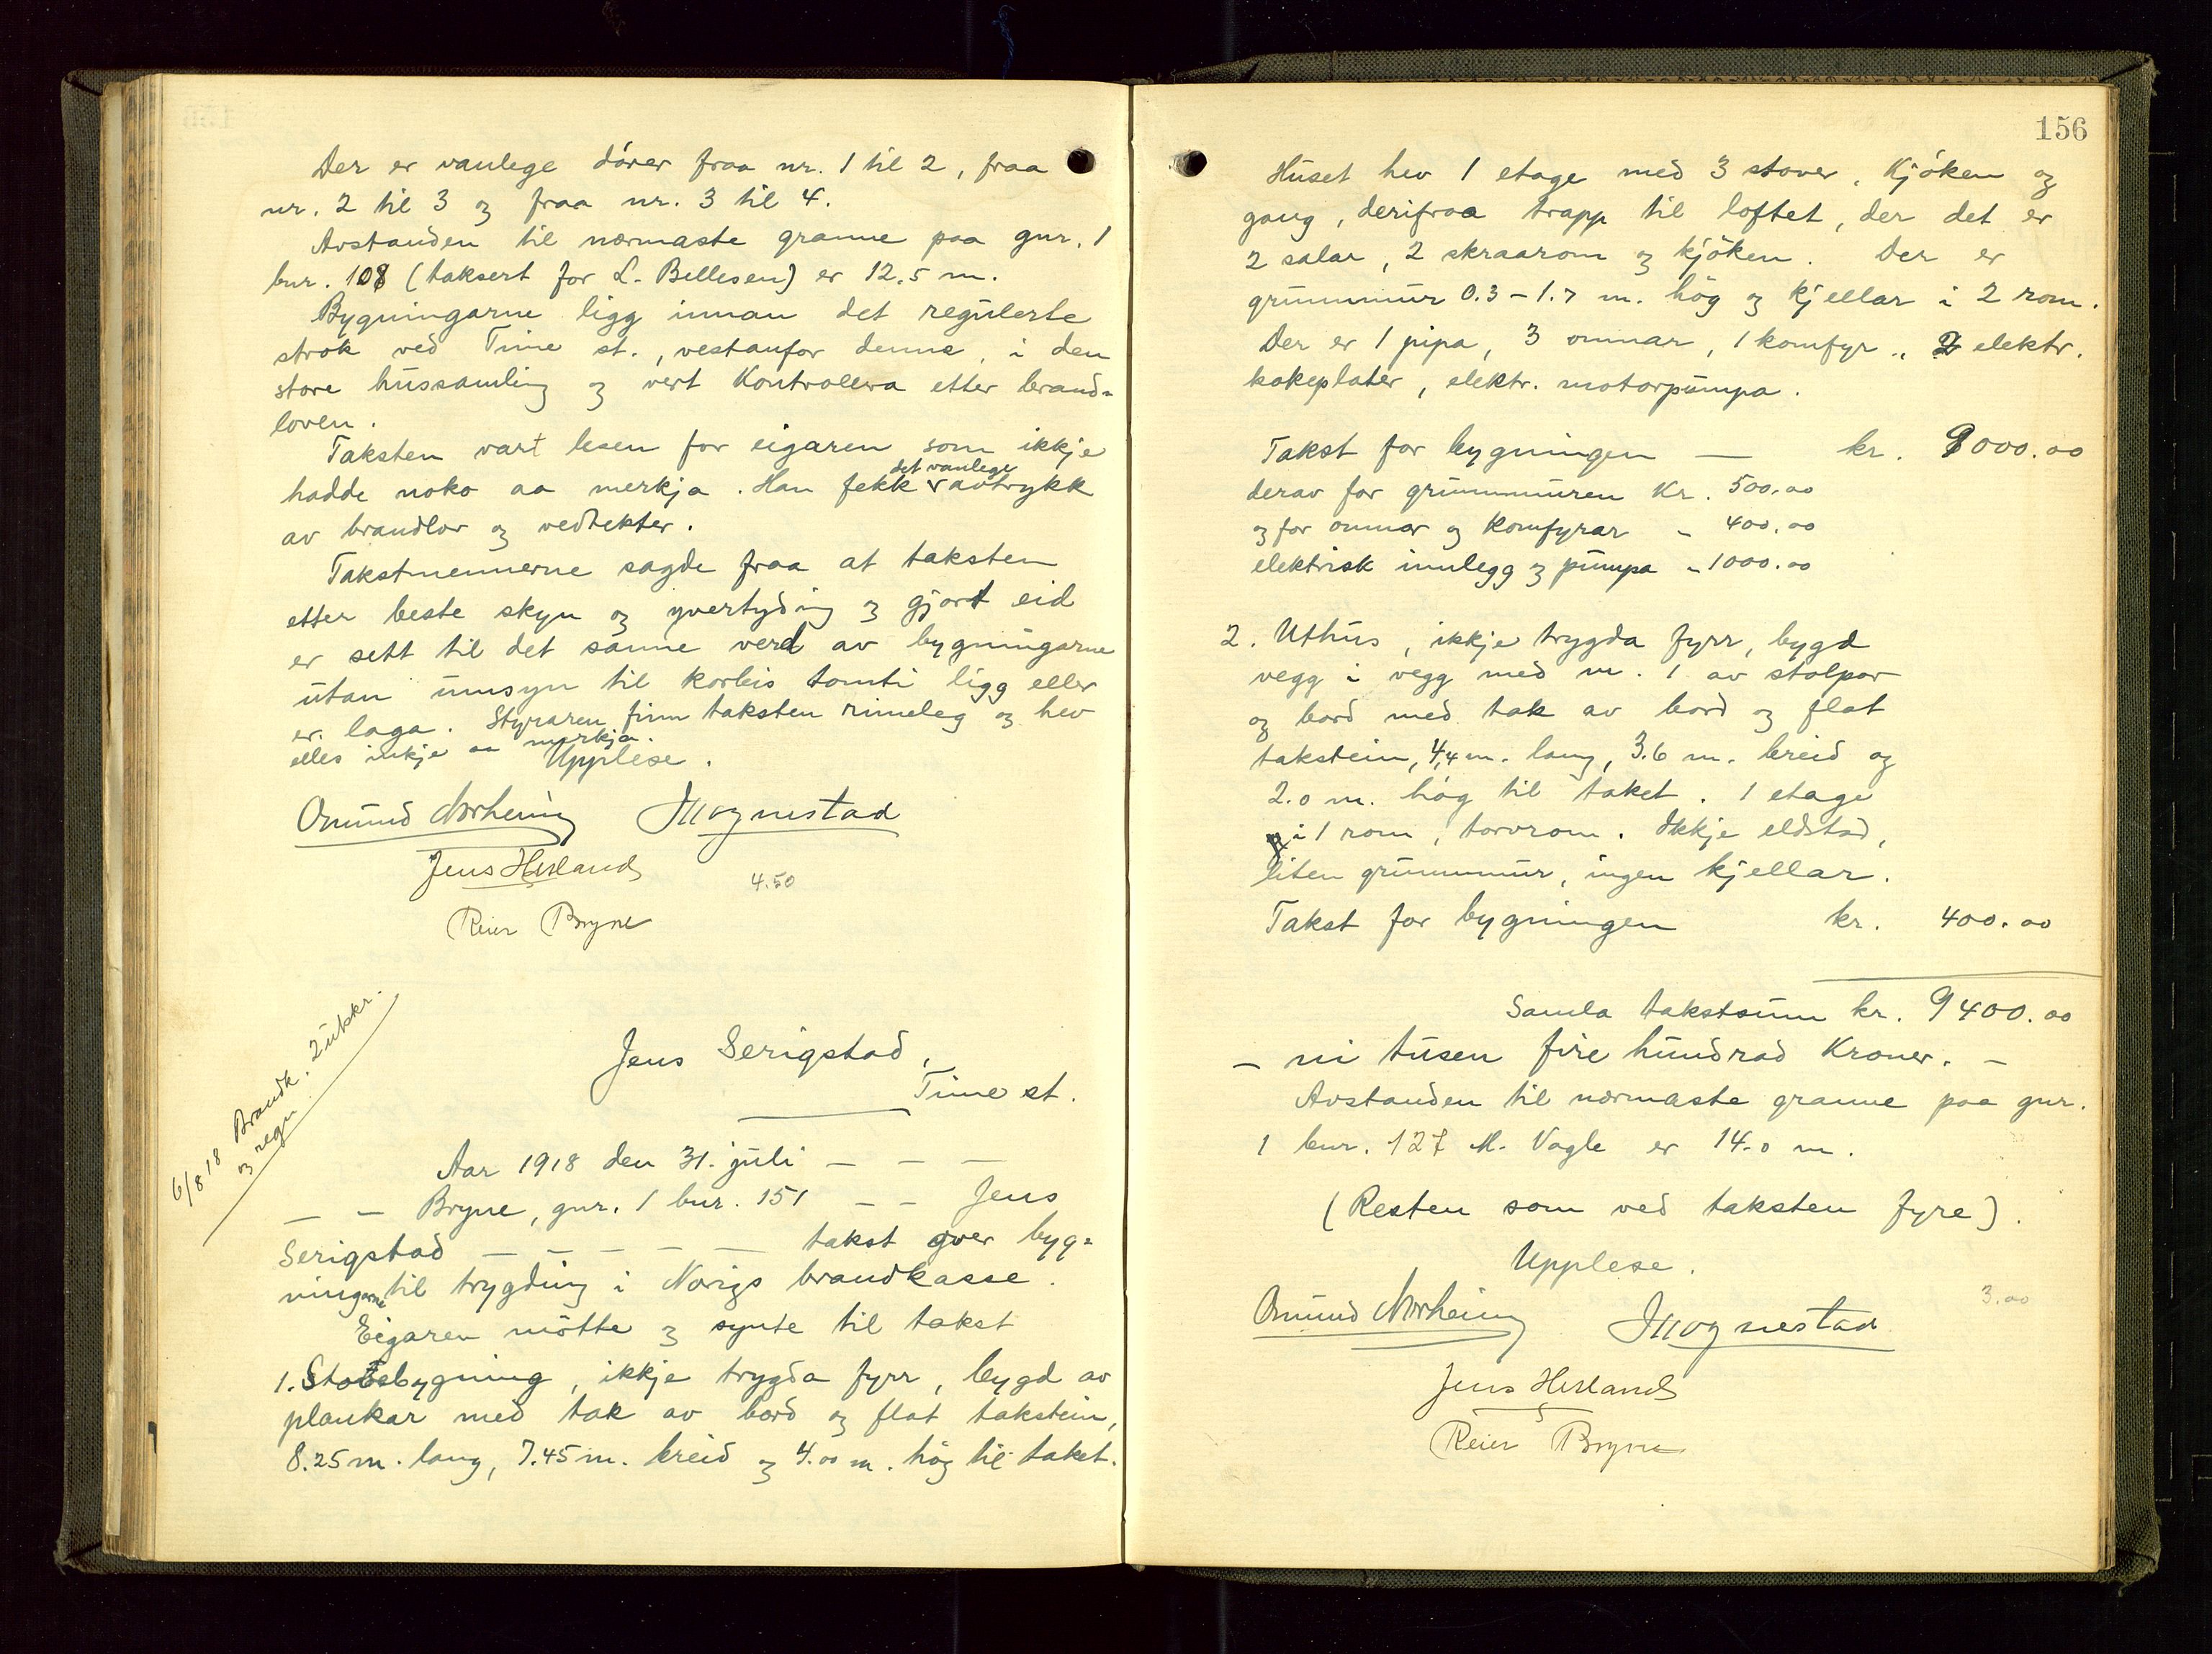 Der er vanlege dörer fraa nr. 1 til 2, fraa
nr. 2 til 3 og fraa nr. 3 til 4.
Avstanden til nærmaste granne paa gnr. 1
bnr. 108 (taksert for L. Bellesen) er 12.5 m.
Bygningarne ligg innan det regulerte
strok ved Time st., vestanfor denne, i den
store hussamling og vert kontrollera etter brand-
loven.
Taksten vart lesen for eigaren som ikkje
hadde noko aa merkja. Han fekk det vanlege avtrykk
av brandlov og vedtekter.
Takstmennerne sagde fraa at taksten
etter beste skyn og yvertyding og gjort eid
er sett til det sanne verd av bygningarne
utan umsyn til korleis tomti ligg eller
er laga. Styraren finn taksten rimeleg og hev
elles inkje aa merkja.
Upplese.
Omund Norheim Mognestad
Jens Herland
4.50
Reier Bryne
6/8 18 Brandk. 2 utskr.
og regn.
Jens Serigstad,
Time st.
Aar 1918 den 31. juli — — —
— — Bryne, gnr. 1 bnr. 151 — — Jens
Serigstad — — — — — takst over byg-
ningarne til trygding i Norigs brandkasse.
Eigaren mötte og synte til takst
1. Stovebygning, ikkje trygda fyrr, bygd av
plankar med tak av bord og flat takstein,
8.25 m. lang, 7.45 m. breid og 4.00 m. hög til taket.
156
Huset hev 1 etage med 3 stover, kjöken og
gang, derifraa trapp til loftet, der det er
2 salar, 2 skraarom og kjöken. Der er
grunnmur 0.3 – 1.7 m. hög og kjellar i 2 rom.
Der er 1 pipa, 3 omnar, 1 komfyr, 2 elektr.
kokeplater, elektr. motorpumpa.
Takst for bygningen — kr. 9000.00
derav for grunnmuren kr. 500.00
og for omnar og komfyrar - 400.00
elektrisk innlegg og pumpa - 1000.00
2. Uthus, ikkje trygda fyrr, bygd
vegg i vegg med nr. 1 av stolpar
og bord med tak av bord og flat
takstein, 4,4 m. lang, 3.6 m. breid og
2.0 m. hög til taket. 1 etage
i 1 rom, torvrom. Ikkje eldstad,
liten grunnmur, ingen kjellar.
Takst for bygningen kr. 400.00
Samla takstsum kr. 9400.00
– ni tusen fire hundrad kroner. –
Avstanden til nærmaste granne paa gnr.
1 bnr. 127 M. Vagle er 14.0 m.
(Resten som ved taksten fyre).
Upplese.
3.00
Omund Norheim Mognestad
Jens Herland
Reier Bryne